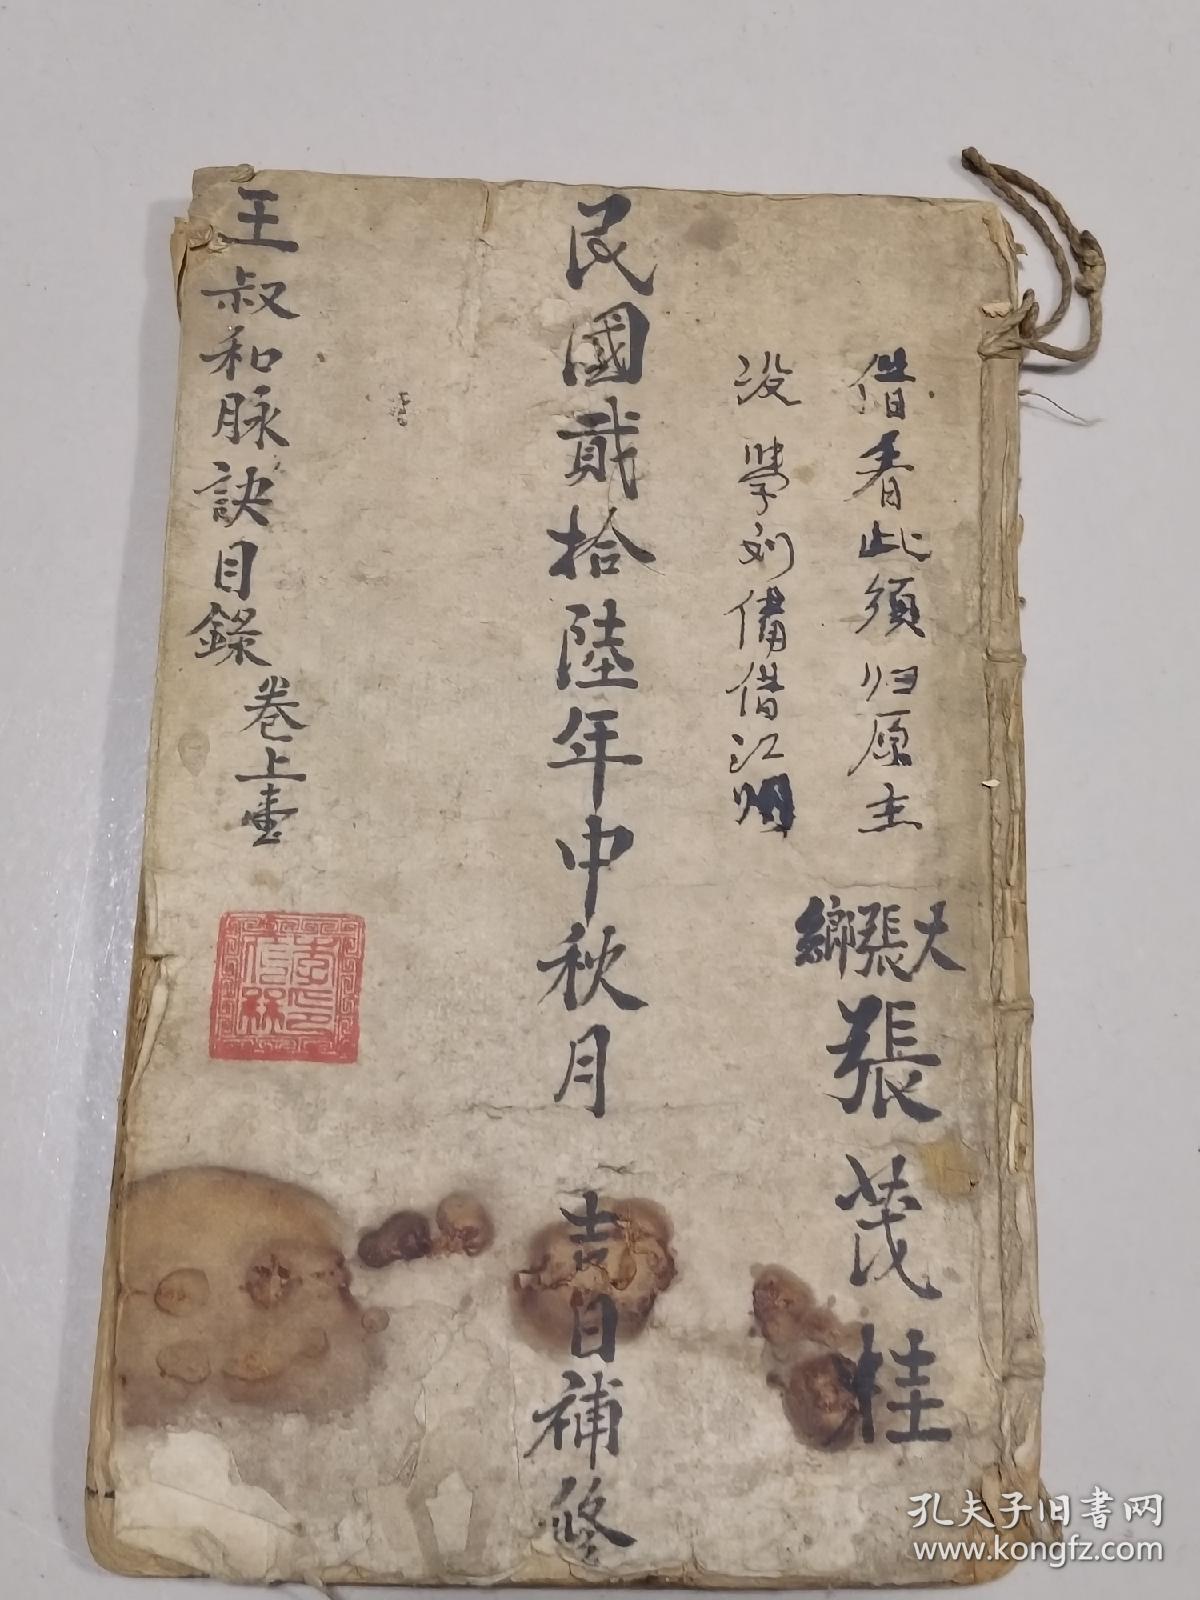 借看此須归原主
没學刘備借江州
大張鄉
張茂桂
民國貮拾陸年中秋月 吉日補修
王叔和脉訣目錄 卷上壹
孔夫子旧书网
www.kongfz.com